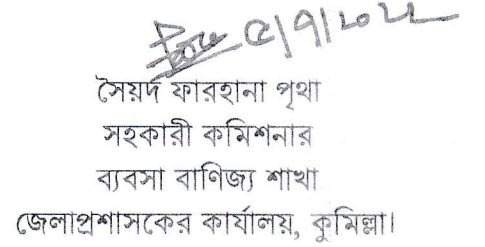 ৫/৭/২০২২
সৈয়দ ফারহানা পৃথা
সহকারী কমিশনার
ব্যবসা বাণিজ্য শাখা
জেলাপ্রশাসকের কার্যালয়, কুমিল্লা।